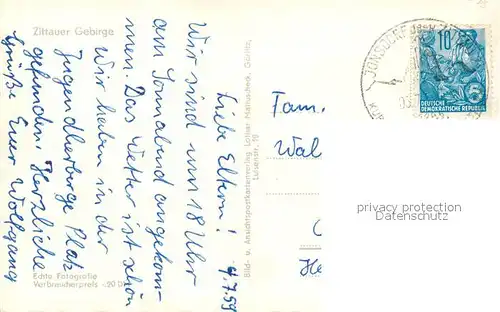 Zittauer Gebirge
4.7.59
Liebe Eltern!
Wir sind um 18 Uhr
am Sonnabend angekom-
men. Das Wetter ist schön
Wir haben in der
Jugendherberge Platz
gefunden. Herzliche
Grüße Euer Wolfgang
Echte Fotografie
Verbraucherpreis -.20 D
Bild- u. Ansichtspostkartenverlag Lothar Mathuscheck, Görlitz,
Luisenstr. 19
JONSDORF
10
DEUTSCHE
DEMOKRATISCHE REPUBLIK
Fam.
Wal
He
privacy protection
Datenschutz